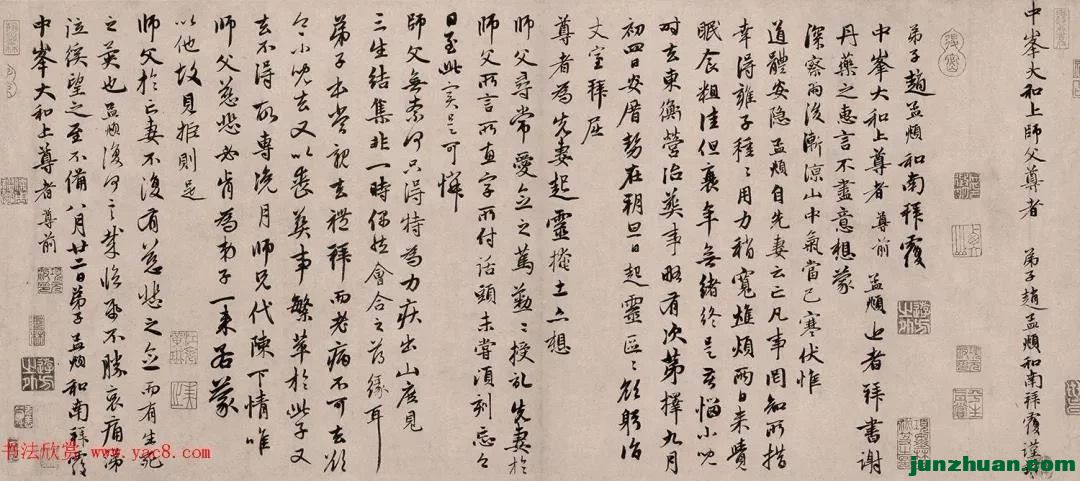 中峯大和上師父尊者 弟子趙孟頫和南拜覆謹封
弟子趙孟頫和南拜覆
中峯大和上尊者尊前 孟頫上者拜書謝
丹藥之惠言不盡意想蒙
深察雨後漸涼山中氣當已寒伏惟
道體安隱孟頫自先妻云亡凡事罔知所措
幸得雍子種種用力稍寬憔煩兩日來
眠食粗佳但衰年無緒終是苦惱小兒
時去東衡營治葬事略有次第擇九月
初四日安厝勢在朔旦日起靈區區欲躬詣
丈室拜屈
尊者為先妻起靈掩土亦想
師父尋常愛念之篤懃懃授記先妻於
師父所言所直字所付話頭未嘗須刻忘之
日至此實是可憐
師父無奈何只得特為力疾出山庶見
三生結集非一時偶然會合之薄緣耳
弟子本當親去禮拜而老病不可去欲
令小兒去又以喪葬事繁萃於此子又
去不得故專浼月師兄代陳下情唯
師父慈悲必肯為弟子一來若蒙
以他故見拒則是
師父於亡妻不復有慈悲之念而有生死
之異也孟頫復何言哉臨紙不勝哀痛涕
泣俟望之至不備八月廿二日弟子孟頫和南拜覆
中峯大和上尊者尊前
书法欣赏 www.yac8.com
junzhuan.com